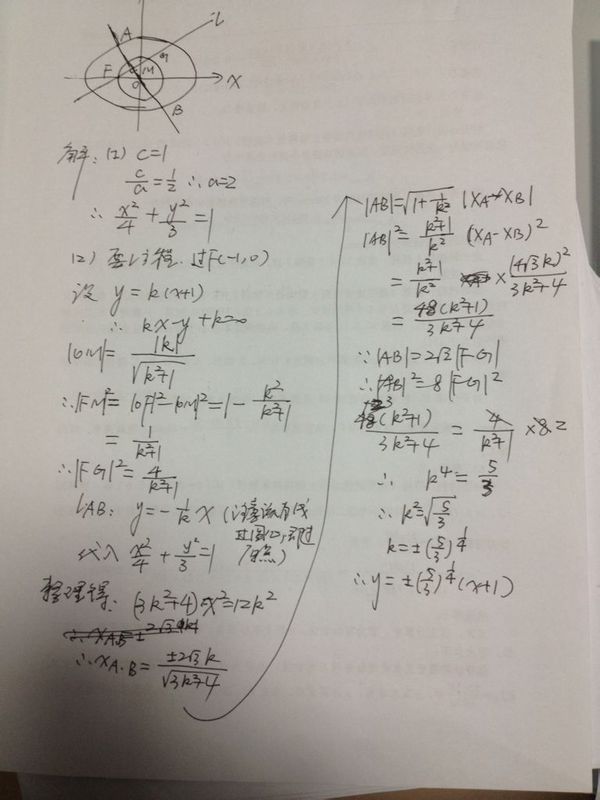 l
A
G
F
M
O
x
B
解: (1) c=1
c/a = 1/2 ∴ a=2
∴ x²/4 + y²/3 = 1
(2) 过F(-1,0)
设 y = k(x+1)
∴ kx-y+k=0
|OM| = |k|/√(k²+1)
∴|FM|² = |OF|²-|OM|² = 1 - k²/(k²+1)
= 1/(k²+1)
∴|FG|² = 4/(k²+1)
lAB: y = -1/k x (
过圆心, 即过
代入 x²/4 + y²/3 = 1 原点)
整理得: (3k²+4)x² = 12k²
∴ xA.B = ±2√3k/√(3k²+4)
|AB| = √(1+1/k²) |xA-xB|
|AB|² = (k²+1)/k² (xA-xB)²
= (k²+1)/k² × (4√3k)²/(3k²+4)
= 48(k²+1)/(3k²+4)
∵ |AB| = 2√2|FG|
∴ |AB|² = 8|FG|²
(k²+1)/(3k²+4) = 4/(k²+1) ×
∴ k⁴ = 5/3
∴ k² = √(5/3)
k = ±(5/3)^(1/4)
∴ y = ±(5/3)^(1/4) (x+1)